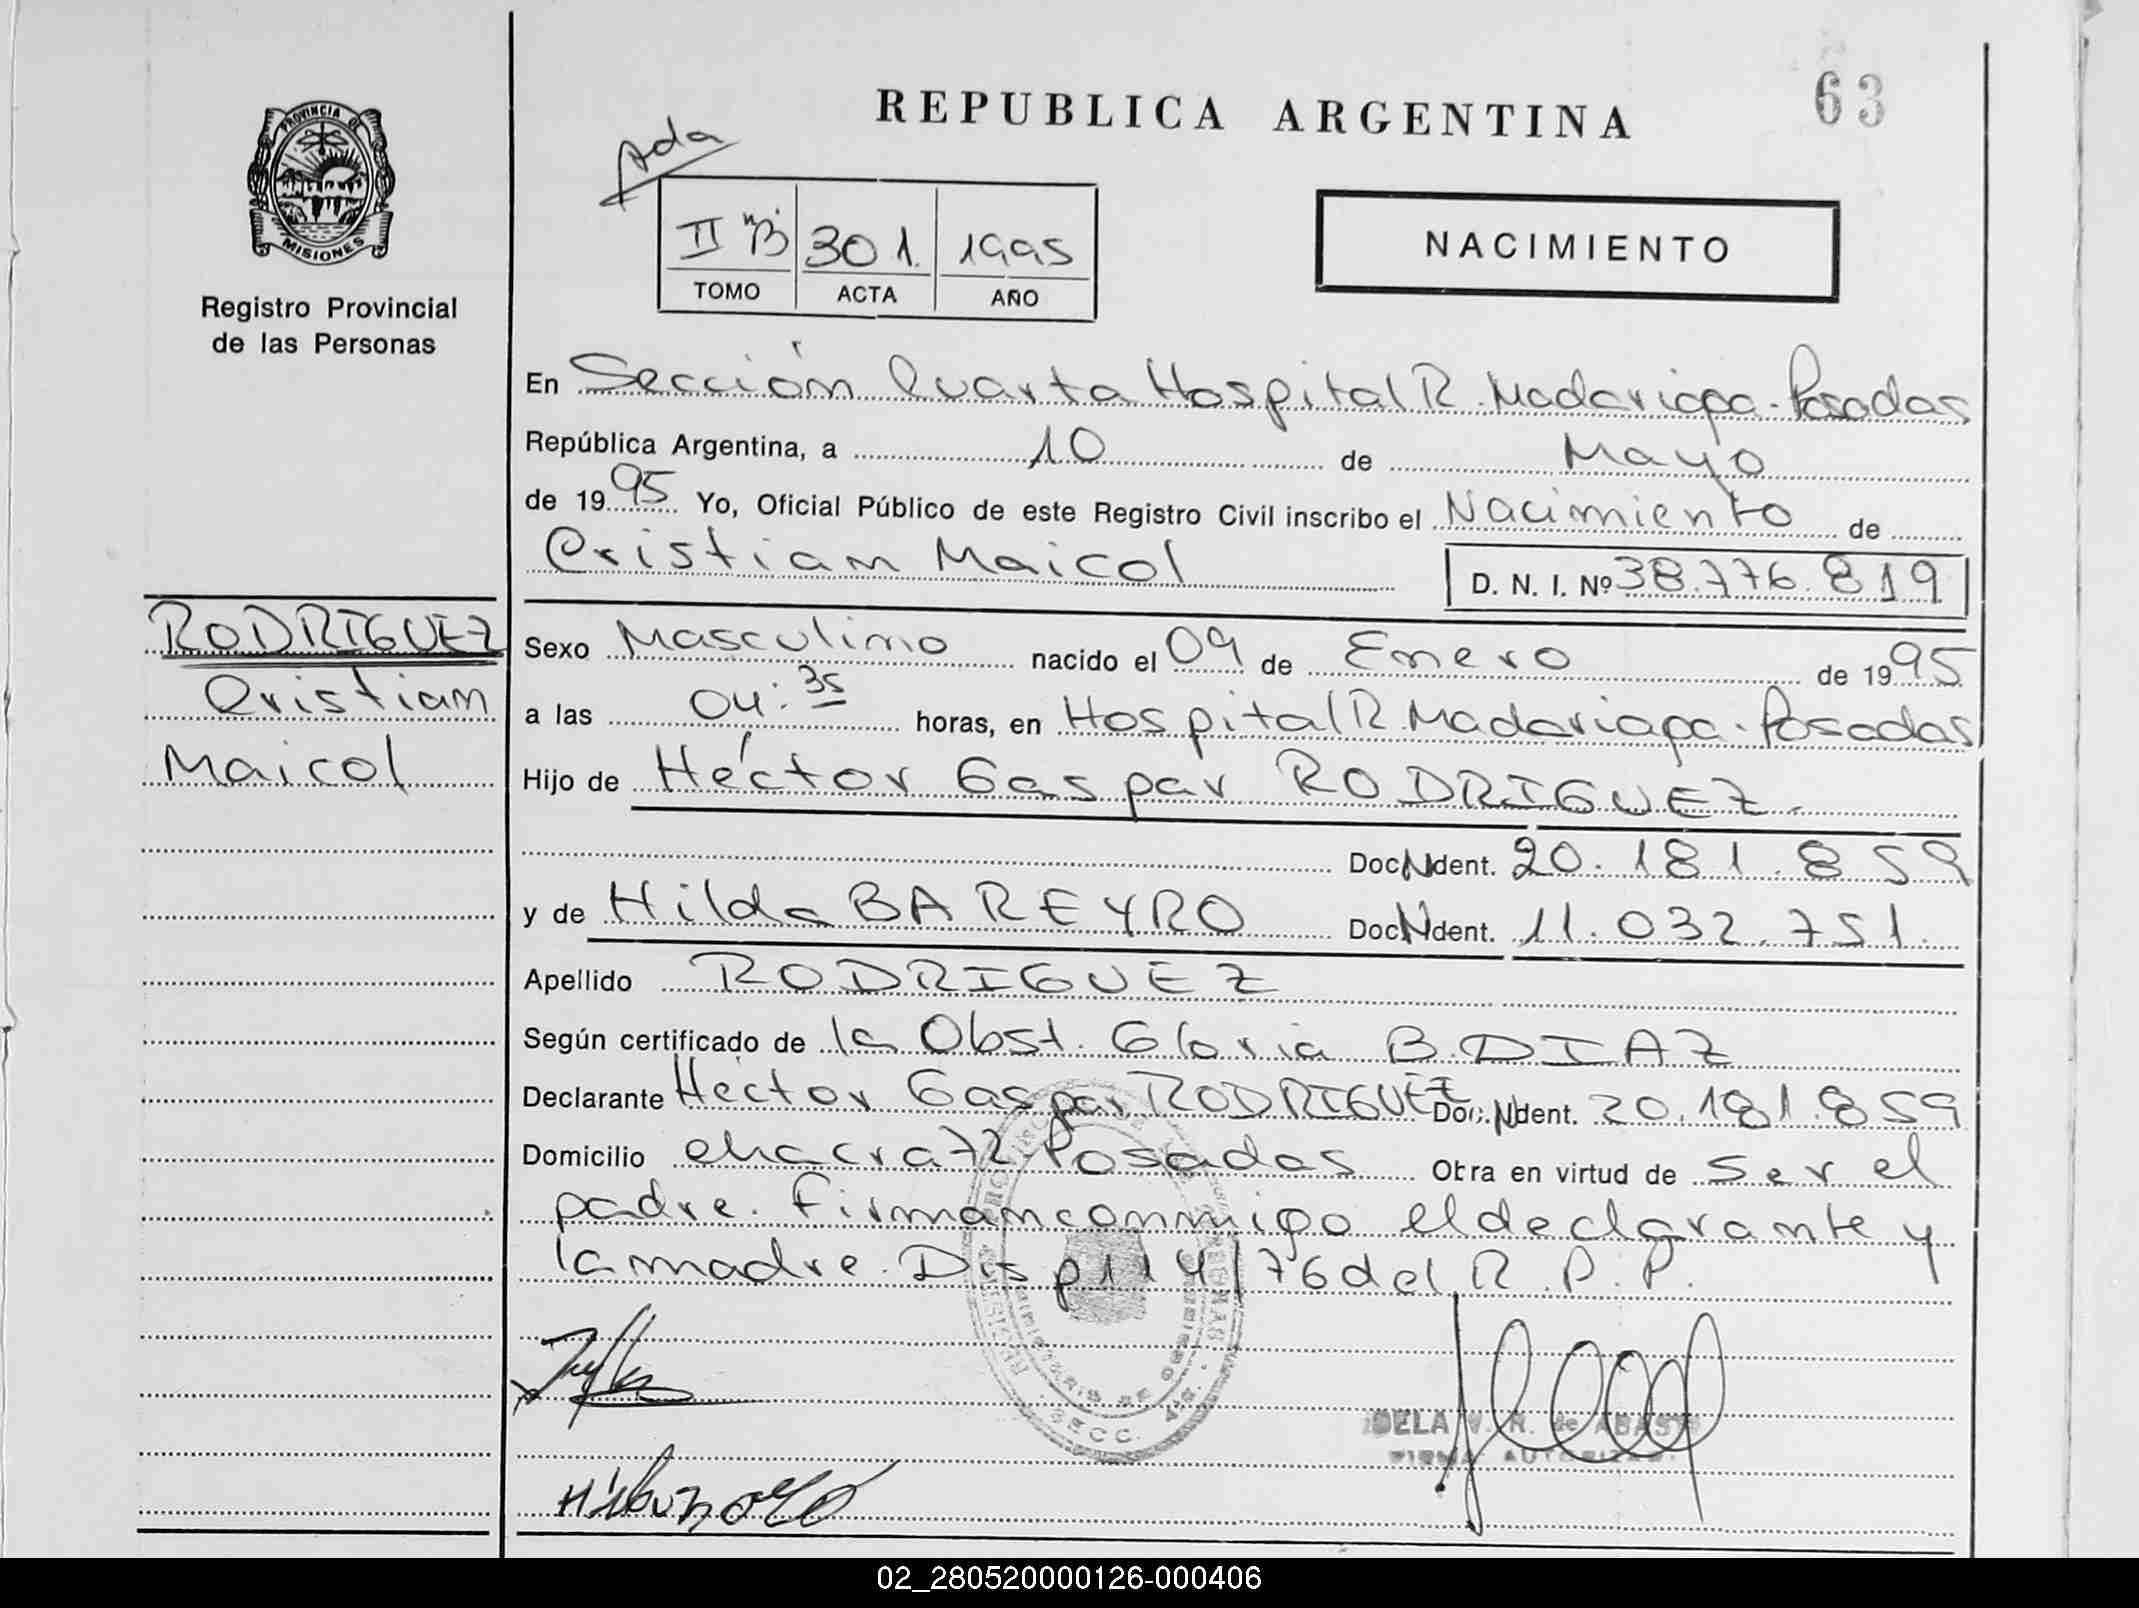 63
REPUBLICA ARGENTINA
PROVINCIA DE
MISIONES
Registro Provincial
de las Personas
Ada
II "B" 301. 1995
TOMO ACTA AÑO
NACIMIENTO
En Sección Cuarta Hospital R. Madariaga - Posadas
República Argentina, a 10 de Mayo
de 1995 Yo, Oficial Público de este Registro Civil inscribo el Nacimiento de
Cristian Maicol D. N. I. Nº 38.776.819
RODRIGUEZ
Cristian
Maicol
Sexo Masculino nacido el 09 de Enero de 1995
a las 04:35 horas, en Hospital R. Madariaga - Posadas
Hijo de Héctor Gaspar RODRIGUEZ.
Doc. N Ident. 20.181.859
y de Hilda BAREYRO Doc. N Ident. 11.032.751.
Apellido RODRIGUEZ
Según certificado de la Obst. Gloria B. DIAZ
Declarante Héctor Gaspar RODRIGUEZ Doc. N Ident. 20.181.859
Domicilio chacra 72 Posadas Obra en virtud de ser el
padre. Firman conmigo el declarante y
la madre. Disp 114/76 del R.P.P.
SECC.
02_280520000126-000406